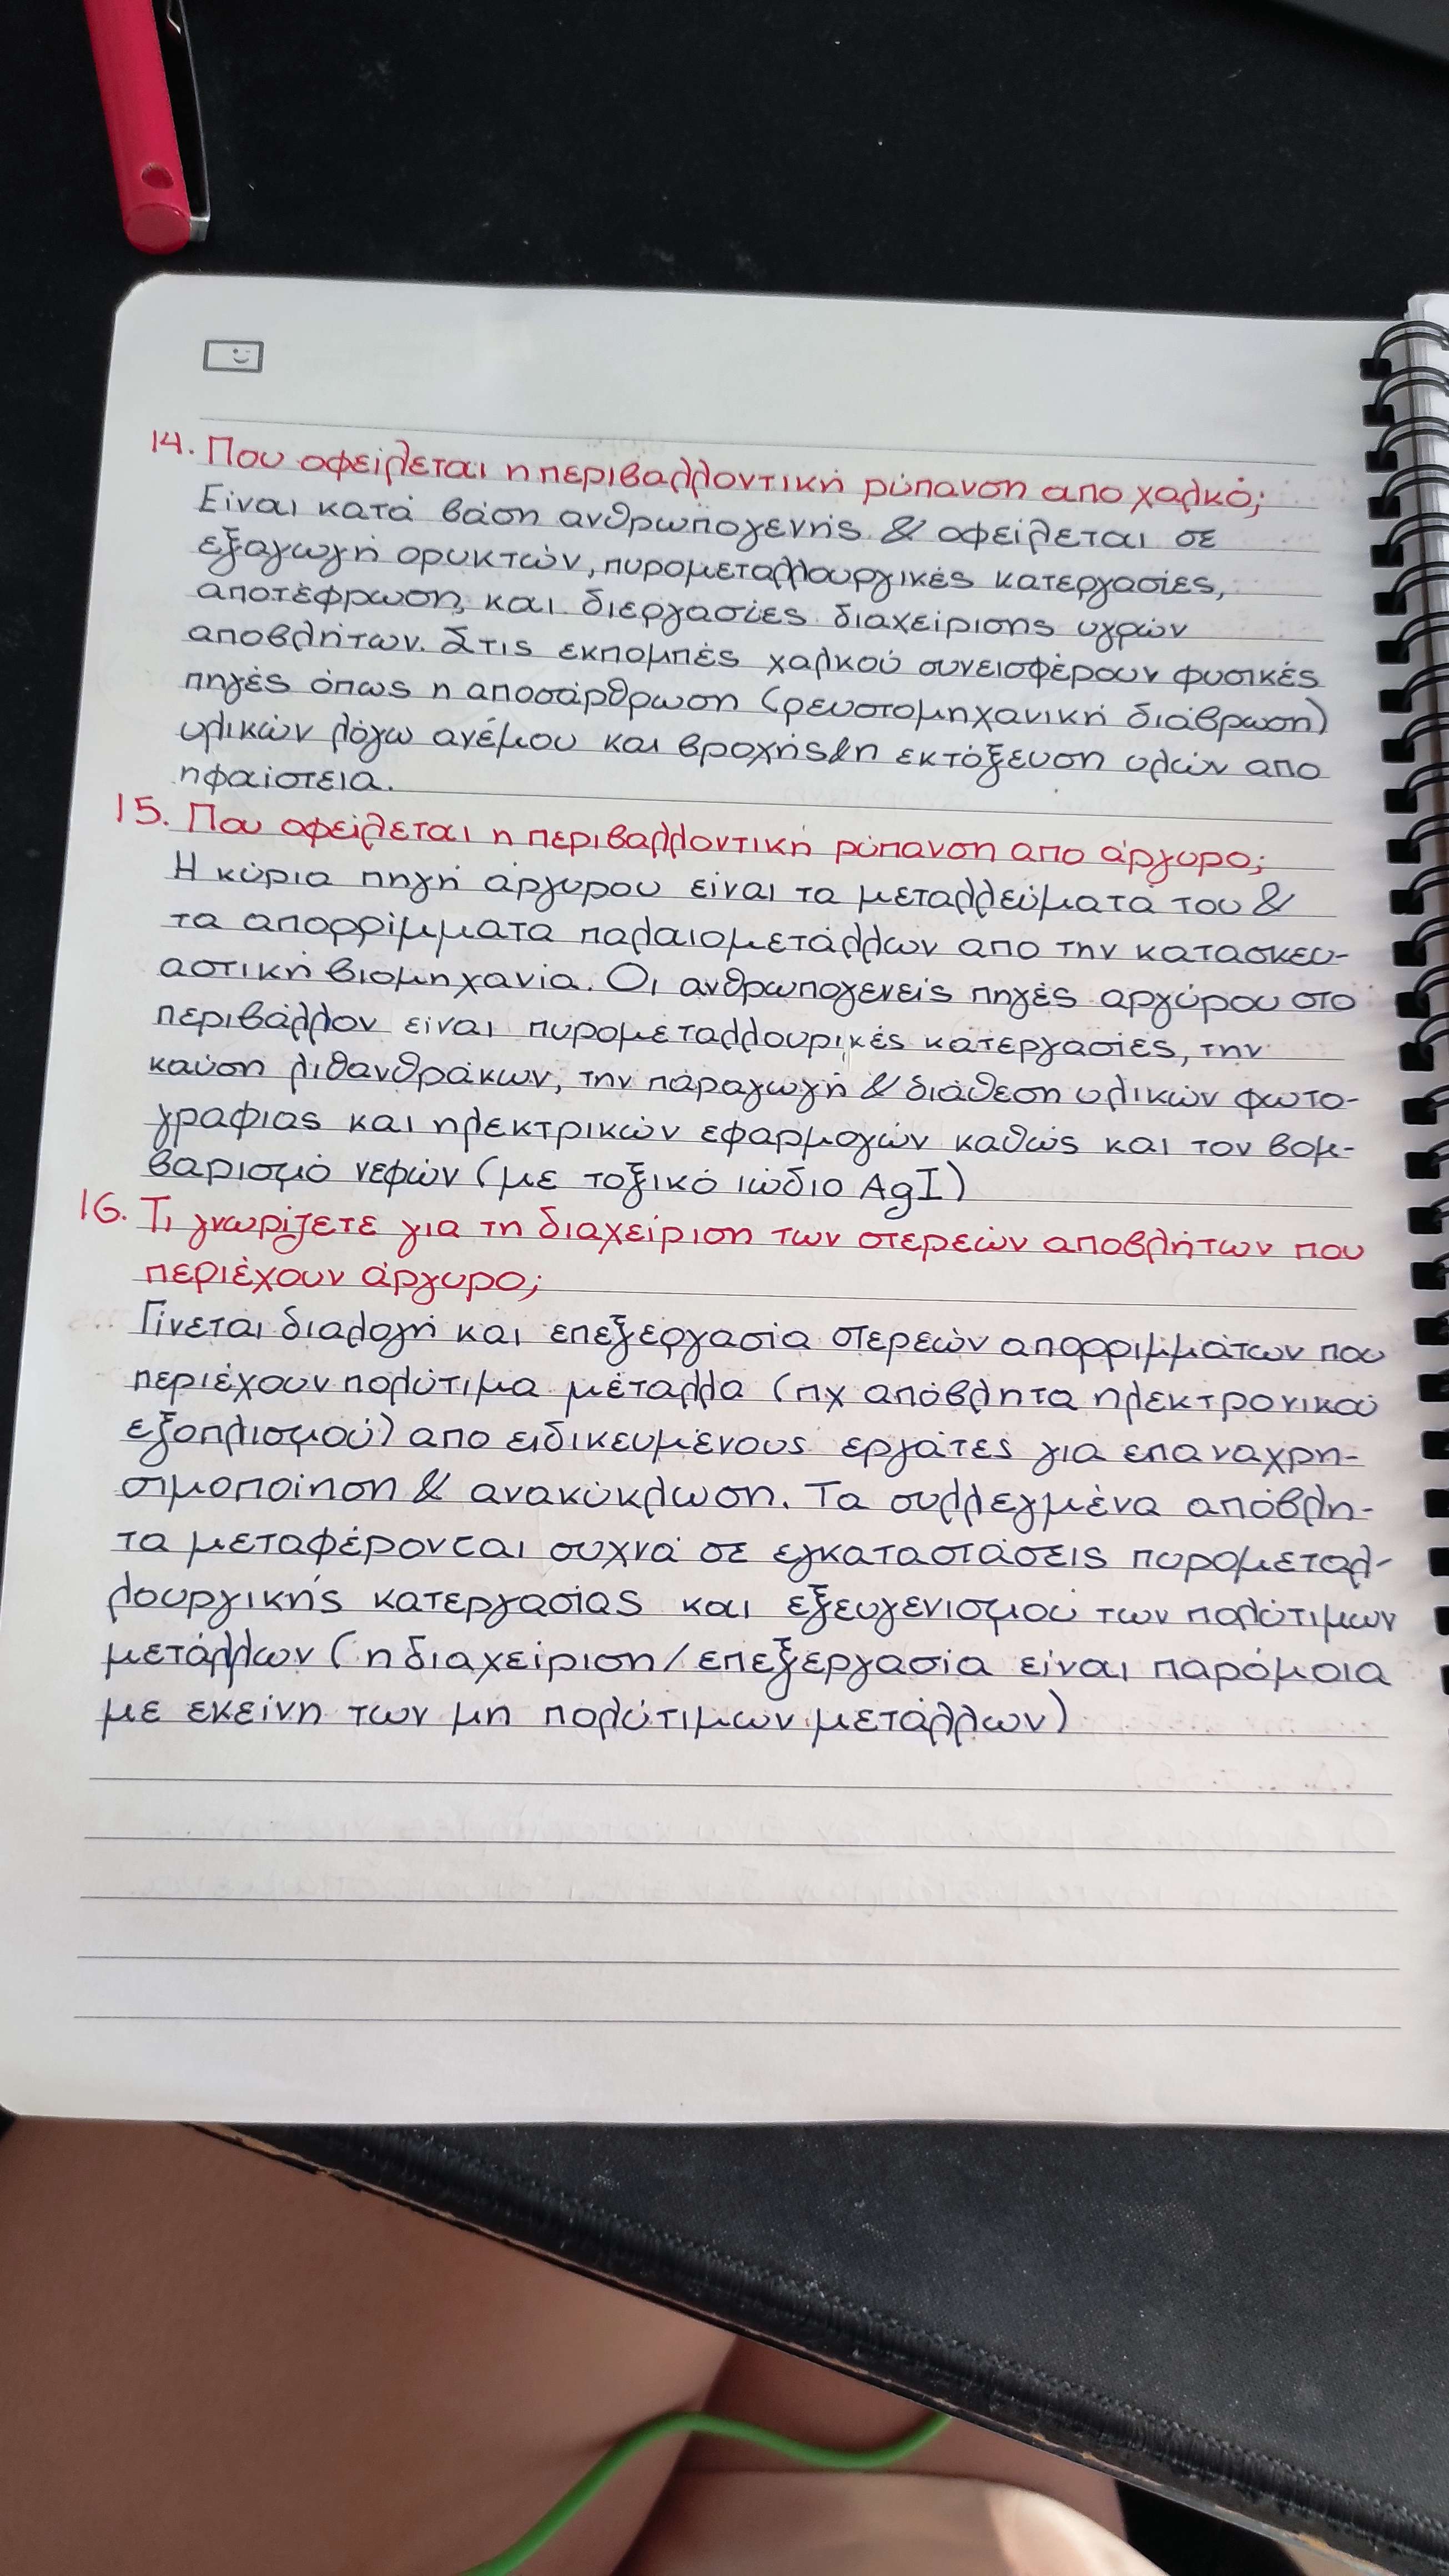 14. Που οφείλεται η περιβαλλοντική ρύπανση απο χαλκό;
Είναι κατά βάση ανθρωπογενής & οφείλεται σε
εξαγωγή ορυκτών, πυρομεταλλουργικές κατεργασίες,
αποτέφρωση, και διεργασίες διαχείρισης υγρών
αποβλήτων. Στις εκπομπές χαλκού συνεισφέρουν φυσικές
πηγές όπως η αποσάρθρωση (ρευστομηχανική διάβρωση)
υλικών λόγω ανέμου και βροχής & η εκτόξευση υλών απο
ηφαίστεια.
15. Που οφείλεται η περιβαλλοντική ρύπανση απο άργυρο;
Η κύρια πηγή άργυρου είναι τα μεταλλεύματά του &
τα απορρίμματα παλαιομετάλλων απο την κατασκευ-
αστική βιομηχανία. Οι ανθρωπογενείς πηγές αργύρου στο
περιβάλλον είναι πυρομεταλλουρικές κατεργασίες, την
καύση λιθανθράκων, την παραγωγή & διάθεση υλικών φωτο-
γραφίας και ηλεκτρικών εφαρμογών καθώς και τον βομ-
βαρισμό νεφών (με τοξικό ιώδιο AgI)
16. Τι γνωρίζετε για τη διαχείριση των στερεών αποβλήτων που
περιέχουν άργυρο;
Γίνεται διαλογή και επεξεργασία στερεών απορριμμάτων που
περιέχουν πολύτιμα μέταλλα (πχ απόβλητα ηλεκτρονικού
εξοπλισμού) απο ειδικευμένους εργάτες για επαναχρη-
σιμοποίηση & ανακύκλωση. Τα συλλεγμένα απόβλη-
τα μεταφέρονται συχνά σε εγκαταστάσεις πυρομεταλ-
λουργικής κατεργασίας και εξευγενισμού των πολύτιμων
μετάλλων (η διαχείριση/επεξεργασία είναι παρόμοια
με εκείνη των μη πολύτιμων μετάλλων)